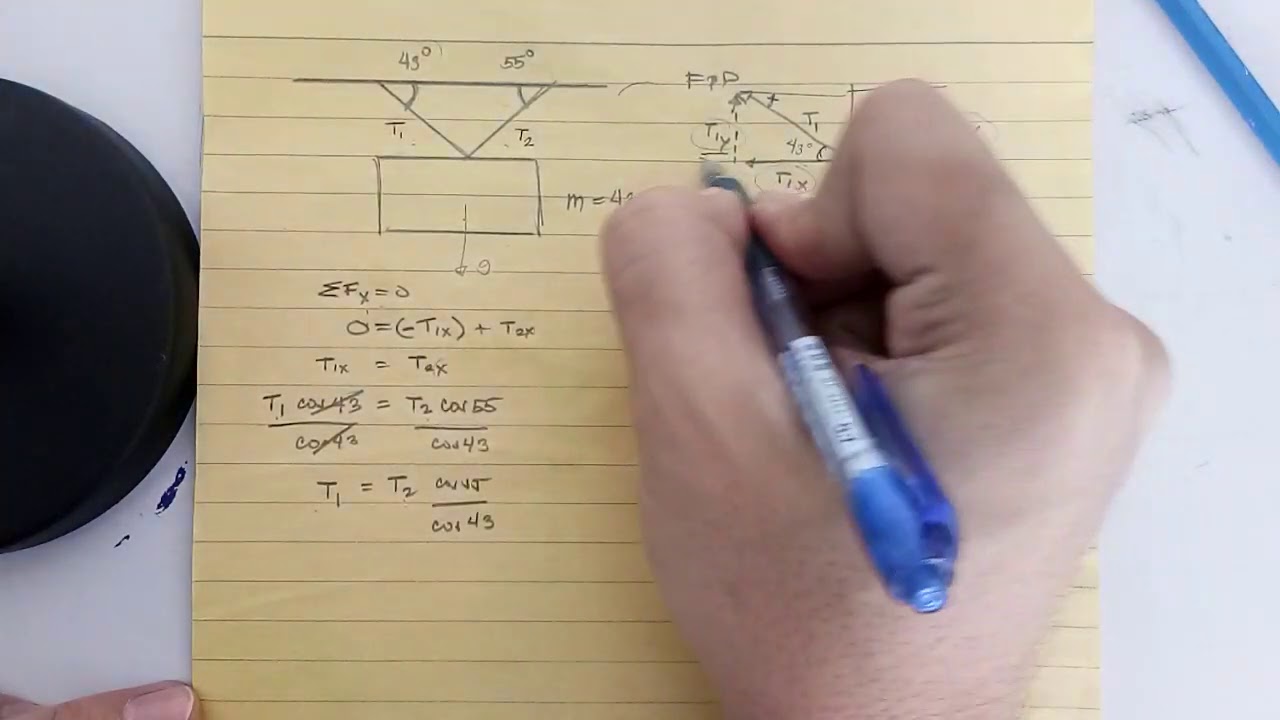 43° 55°
T₁ T₂
FBD
T₁
T₁y
43°
T₁x
ΣFx = 0
0 = (-T₁x) + T₂x
T₁x = T₂x
T₁ cos43 = T₂ cos55
cos43 cos43
T₁ = T₂ cos55
cos43